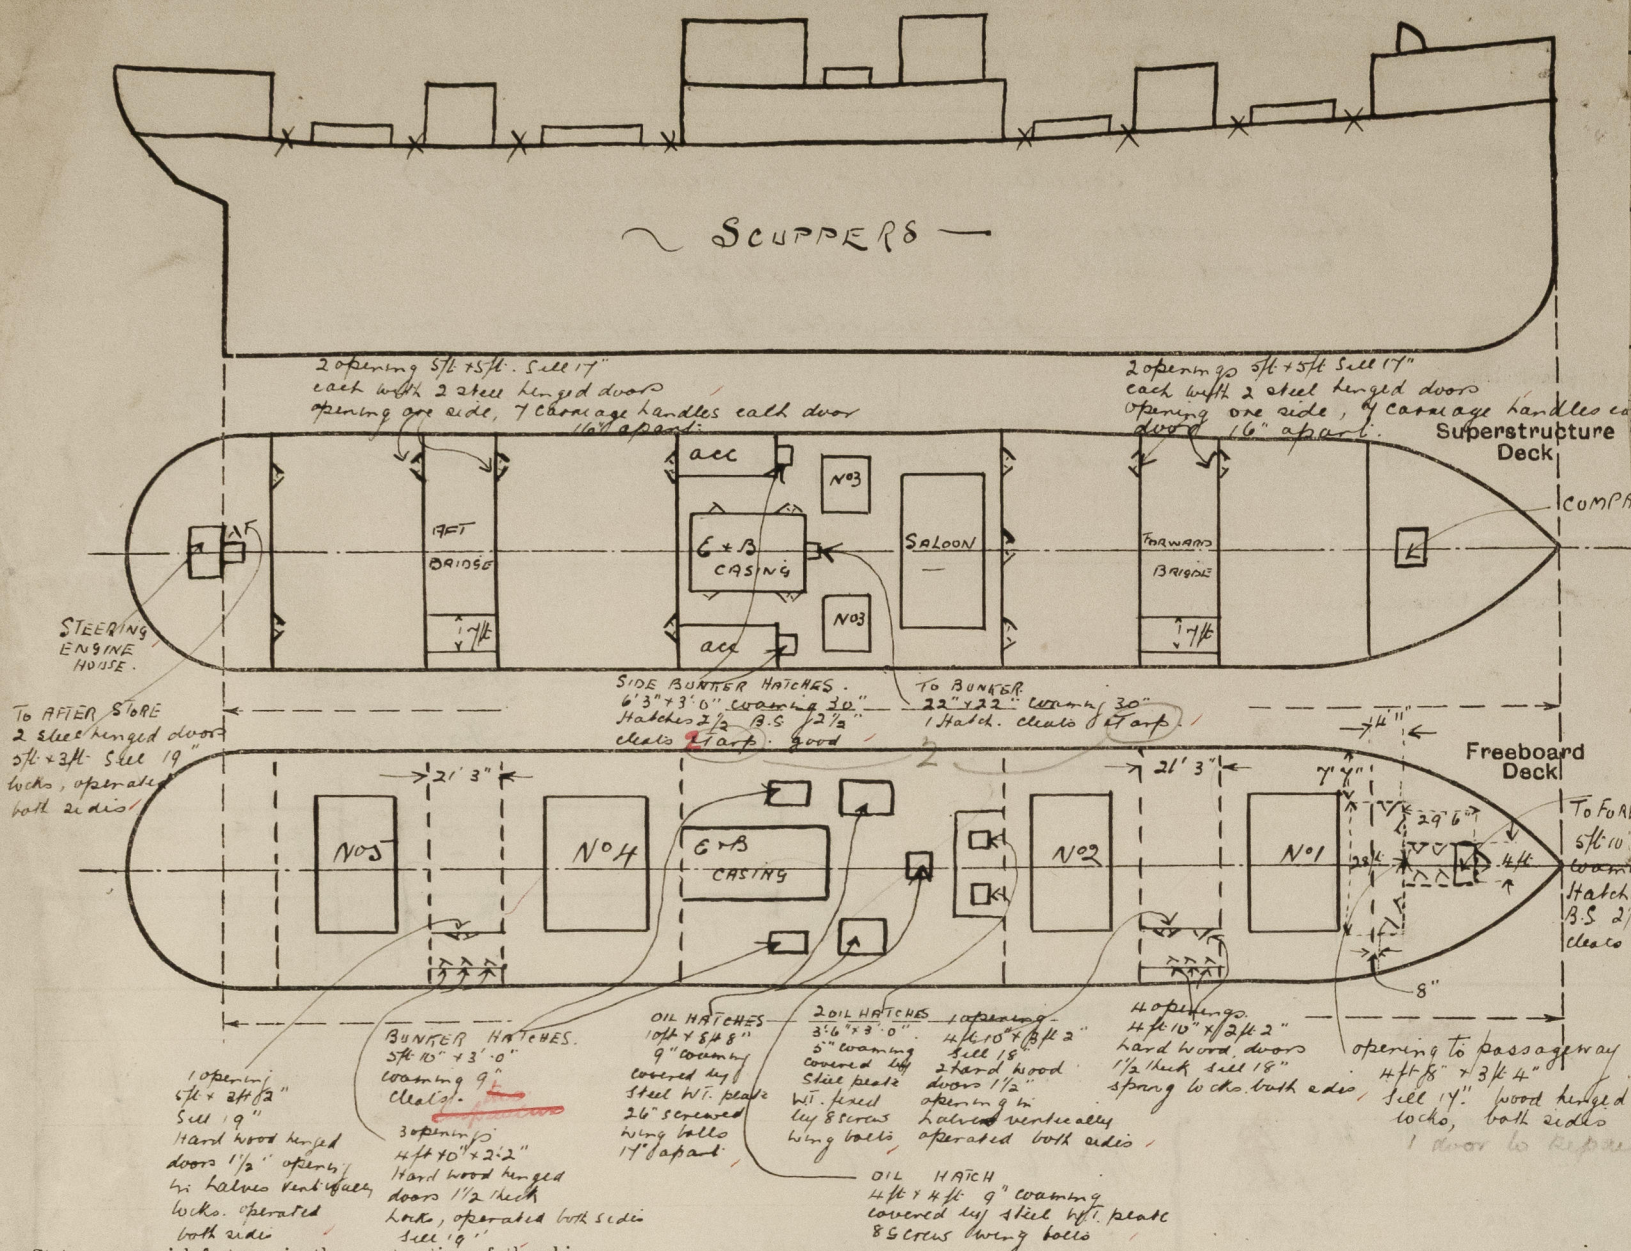 SCUPPERS
2 opening 5ft x 5ft. Sill 17"
each with 2 steel hinged doors
opening one side, 7 carriage handles each door
16" apart.
2 openings 5ft x 5ft Sill 17"
each with 2 steel hinged doors
opening one side, 7 carriage handles ea
door 16" apart.
Superstructure
Deck
acc
No3
COMPA
AFT
BRIDGE
E + B
CASING
SALOON
FORWARD
BRIDGE
No3
7ft
acc
7ft
STEERING
ENGINE
HOUSE.
SIDE BUNKER HATCHES.
6'3" x 3'0" coaming 30"
Hatches 2 1/2 B.S 2 1/2"
cleats Tarp. good
TO BUNKER
22" x 22" coaming 30"
1 Hatch. cleats Tarp.
2
TO AFTER STORE
2 steel hinged doors
5ft x 3ft Sill 19"
locks, operated
both sides
4'11"
Freeboard
Deck
21' 3"
21' 3"
7'7"
29'6"
TO FOR
5ft 10
coam
Hatch
B.S 2
cleats
No5
No4
E + B
CASING
No2
No1
28ft
4ft
8"
BUNKER HATCHES.
5ft 10" x 3'.0"
coaming 9"
cleats.
3 openings
4ft x 0" x 2'.2"
Hard wood hinged
doors 1 1/2 thick
Locks, operated both sides
Sill 19"
1 opening
5ft x 2ft 2"
Sill 19"
Hard wood hinged
doors 1 1/2" opening
in halves vertically
locks. operated
both sides
OIL HATCHES
10ft x 8ft 8"
9" coaming
covered by
steel W.T. plate
26" screwed
wing bolts
17" apart
2 OIL HATCHES
3'.6" x 3'.0"
5" coaming
covered by
steel plate
W.T. fixed
by 8 screw
wing bolts
1 opening
4ft 10" x 3ft 2"
Sill 18"
2 hard wood
doors 1 1/2"
opening in
halves vertically
operated both sides
4 openings.
4ft 10" x 2ft 2"
hard wood doors
1 1/2 thick sill 18"
spring locks both sides
opening to passageway
4ft 8" x 3ft 4"
Sill 17". wood hinged
locks, both sides
1 door to
OIL HATCH
4ft x 4ft 9" coaming
covered by steel W.T. plate
8 screw wing bolts